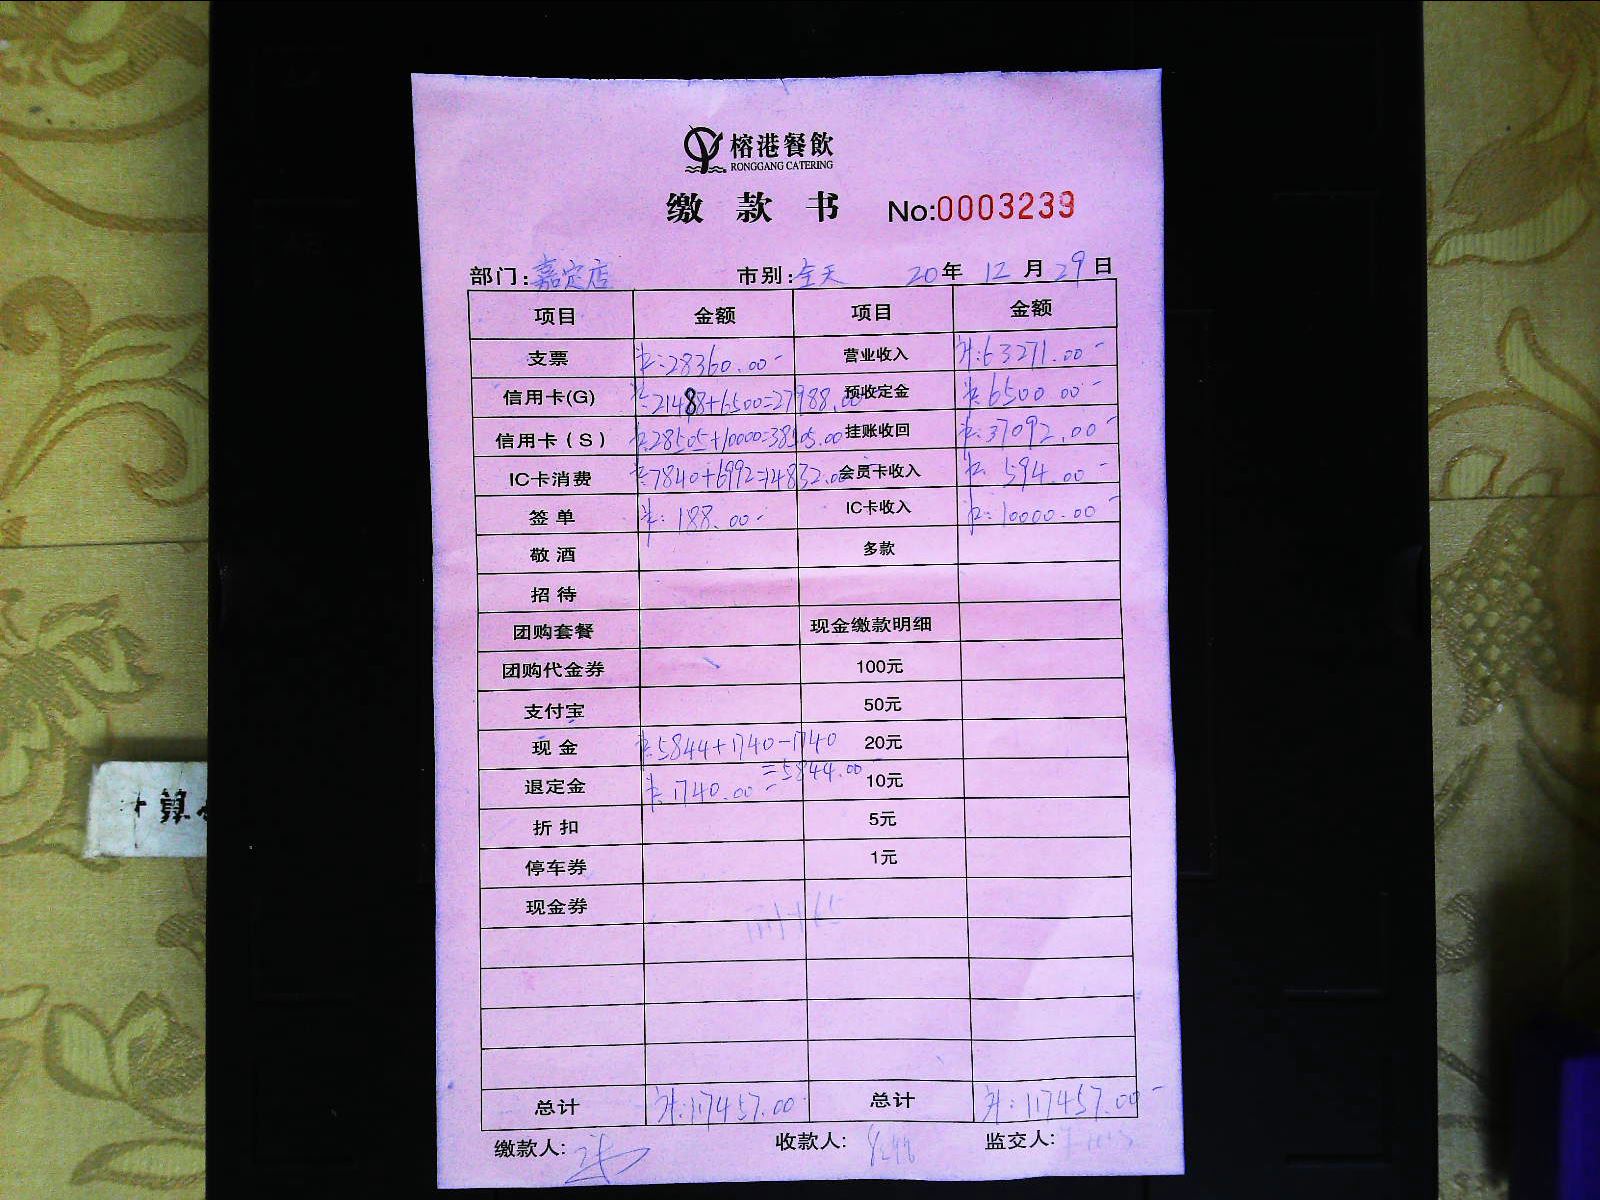 榕港餐飲
RONGGANG CATERING
缴款书 No:0003239
部门:嘉定店 市别:全天 20年 12月 29日
项目 金额 项目 金额
支票 28360.00- 营业收入 63271.00-
信用卡(G) 21488+6500=27988.00 预收定金 6500.00-
信用卡(S) 28505+10000=38505.00 挂账收回 37092.00-
IC卡消费 7840+6992=14832.00 会员卡收入 594.00-
签单 188.00- IC卡收入 10000.00-
敬酒 多款
招待
团购套餐 现金缴款明细
团购代金券 100元
支付宝 50元
现金 5844+1740-1740 20元
=5844.00-
退定金 1740.00- 10元
折扣 5元
停车券 1元
现金券
总计 117457.00- 总计 117457.00-
缴款人: 收款人: 监交人:
计算